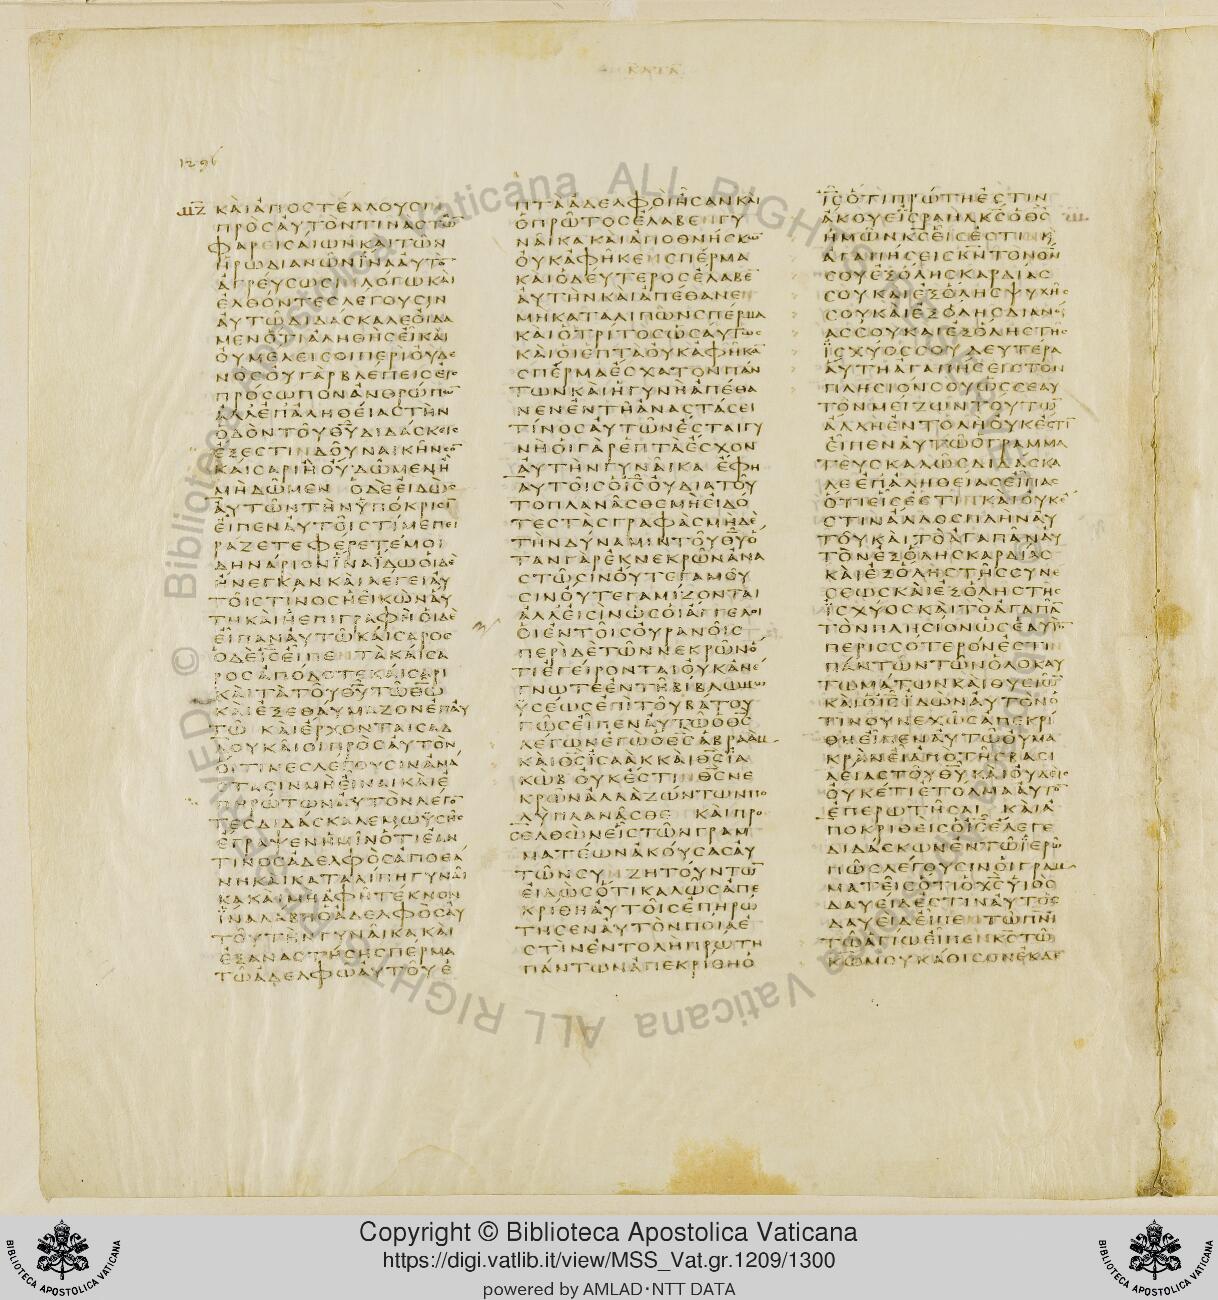 ΚΑΤΑ
1296
ΚΑΙΑΠΟΣΤΕΛΛΟΥΣΙΝ
ΠΡΟΣΑΥΤΟΝΤΙΝΑΣΤΩ
ΦΑΡΕΙΣΑΙΩΝΚΑΙΤΩΝ
ΗΡΩΔΙΑΝΩΝΙΝΑΑΥΤΟ
ΑΓΡΕΥΣΩΣΙΛΟΓΩΚΑΙ
ΕΛΘΟΝΤΕΣΛΕΓΟΥΣΙΝ
ΑΥΤΩΔΙΔΑΣΚΑΛΕΟΙΔΑ
ΜΕΝΟΤΙΑΛΗΘΗΣΕΙΚΑΙ
ΟΥΜΕΛΕΙΣΟΙΠΕΡΙΟΥΔΕ
ΝΟΣΟΥΓΑΡΒΛΕΠΕΙΣΕΙΣ
ΠΡΟΣΩΠΟΝΑΝΘΡΩΠΩ
ΑΛΛΕΠΑΛΗΘΕΙΑΣΤΗΝ
ΟΔΟΝΤΟΥΘΥΔΙΔΑΣΚΕΙΣ
ΕΞΕΣΤΙΝΔΟΥΝΑΙΚΗΝΣΟ
ΚΑΙΣΑΡΙΗΟΥΔΩΜΕΝΗ
ΜΗΔΩΜΕΝ ΟΔΕΕΙΔΩΣ
ΑΥΤΩΝΤΗΝΥΠΟΚΡΙΣΙ
ΕΙΠΕΝΑΥΤΟΙΣΤΙΜΕΠΕΙ
ΡΑΖΕΤΕΦΕΡΕΤΕΜΟΙ
ΔΗΝΑΡΙΟΝΙΝΑΙΔΩΟΙΔΕ
ΗΝΕΓΚΑΝΚΑΙΛΕΓΕΙΑΥ
ΤΟΙΣΤΙΝΟΣΗΕΙΚΩΝΑΥ
ΤΗΚΑΙΗΕΠΙΓΡΑΦΗΟΙΔΕ
ΕΙΠΑΝΑΥΤΩΚΑΙΣΑΡΟΣ
ΟΔΕΙΣΕΙΠΕΝΤΑΚΑΙΣΑ
ΡΟΣΑΠΟΔΟΤΕΚΑΙΣΑΡΙ
ΚΑΙΤΑΤΟΥΘΥΤΩΘΩ
ΚΑΙΕΞΕΘΑΥΜΑΖΟΝΕΠΑΥ
ΤΩ ΚΑΙΕΡΧΟΝΤΑΙΣΑΔ
ΔΟΥΚΑΙΟΙΠΡΟΣΑΥΤΟΝ
ΟΙΤΙΝΕΣΛΕΓΟΥΣΙΝΑΝΑ
ΣΤΑΣΙΝΜΗΕΙΝΑΙΚΑΙΕ
ΠΗΡΩΤΩΝΑΥΤΟΝΛΕΓΟ
ΤΕΣΔΙΔΑΣΚΑΛΕΜΩΥΣΗΣ
ΕΓΡΑΨΕΝΗΜΙΝΟΤΙΕΑΝ
ΤΙΝΟΣΑΔΕΛΦΟΣΑΠΟΘΑ
ΝΗΚΑΙΚΑΤΑΛΙΠΗΓΥΝΑΙ
ΚΑΚΑΙΜΗΑΦΗΤΕΚΝΟΝ
ΙΝΑΛΑΒΗΟΑΔΕΛΦΟΣΑΥ
ΤΟΥΤΗΝΓΥΝΑΙΚΑΚΑΙ
ΕΞΑΝΑΣΤΗΣΗΣΠΕΡΜΑ
ΤΩΑΔΕΛΦΩΑΥΤΟΥΕ
ΠΤΑΑΔΕΛΦΟΙΗΣΑΝΚΑΙ
ΟΠΡΩΤΟΣΕΛΑΒΕΝΓΥ
ΝΑΙΚΑΚΑΙΑΠΟΘΝΗΣΚΩ
ΟΥΚΑΦΗΚΕΝΣΠΕΡΜΑ
ΚΑΙΟΔΕΥΤΕΡΟΣΕΛΑΒΕ
ΑΥΤΗΝΚΑΙΑΠΕΘΑΝΕΝ
ΜΗΚΑΤΑΛΙΠΩΝΣΠΕΡΜΑ
ΚΑΙΟΤΡΙΤΟΣΩΣΑΥΤΩΣ
ΚΑΙΟΙΕΠΤΑΟΥΚΑΦΗΚΑ
ΣΠΕΡΜΑΕΣΧΑΤΟΝΠΑΝ
ΤΩΝΚΑΙΗΓΥΝΗΑΠΕΘΑ
ΝΕΝΕΝΤΗΑΝΑΣΤΑΣΕΙ
ΤΙΝΟΣΑΥΤΩΝΕΣΤΑΙΓΥ
ΝΗΟΙΓΑΡΕΠΤΑΕΣΧΟΝ
ΑΥΤΗΝΓΥΝΑΙΚΑ ΕΦΗ
ΑΥΤΟΙΣΟΙΣΟΥΔΙΑΤΟΥ
ΤΟΠΛΑΝΑΣΘΕΜΗΕΙΔΟ
ΤΕΣΤΑΣΓΡΑΦΑΣΜΗΔΕ
ΤΗΝΔΥΝΑΜΙΝΤΟΥΘΥΟ
ΤΑΝΓΑΡΕΚΝΕΚΡΩΝΑΝΑ
ΣΤΩΣΙΝΟΥΤΕΓΑΜΟΥ
ΣΙΝΟΥΤΕΓΑΜΙΖΟΝΤΑΙ
ΑΛΛΕΙΣΙΝΩΣΟΙΑΓΓΕΛΟΙ
ΟΙΕΝΤΟΙΣΟΥΡΑΝΟΙΣ
ΠΕΡΙΔΕΤΩΝΝΕΚΡΩΝΟ
ΤΙΕΓΕΙΡΟΝΤΑΙΟΥΚΑΝΕ
ΓΝΩΤΕΕΝΤΗΒΙΒΛΩΜΩ
ΥΣΕΩΣΕΠΙΤΟΥΒΑΤΟΥ
ΠΩΣΕΙΠΕΝΑΥΤΩΟΘΣ
ΛΕΓΩΝΕΓΩΟΘΣΑΒΡΑΑΜ
ΚΑΙΘΣΙΣΑΑΚΚΑΙΘΣΙΑ
ΚΩΒΟΥΚΕΣΤΙΝΘΣΝΕ
ΚΡΩΝΑΛΛΑΖΩΝΤΩΝΠΟ
ΛΥΠΛΑΝΑΣΘΕ ΚΑΙΠΡΟ
ΣΕΛΘΩΝΕΙΣΤΩΝΓΡΑΜ
ΜΑΤΕΩΝΑΚΟΥΣΑΣΑΥ
ΤΩΝΣΥΝΖΗΤΟΥΝΤΩ
ΕΙΔΩΣΟΤΙΚΑΛΩΣΑΠΕ
ΚΡΙΘΗΑΥΤΟΙΣΕΠΗΡΩ
ΤΗΣΕΝΑΥΤΟΝΠΟΙΑΕ
ΣΤΙΝΕΝΤΟΛΗΠΡΩΤΗ
ΠΑΝΤΩΝΑΠΕΚΡΙΘΗΟ
ΙΣΟΤΙΠΡΩΤΗΕΣΤΙΝ
ΑΚΟΥΕΙΣΡΑΗΛΚΣΟΘΣ
ΗΜΩΝΚΣΕΙΣΕΣΤΙΝΚ
ΑΓΑΠΗΣΕΙΣΚΝΤΟΝΘΝ
ΣΟΥΕΞΟΛΗΣΚΑΡΔΙΑΣ
ΣΟΥΚΑΙΕΞΟΛΗΣΨΥΧΗΣ
ΣΟΥΚΑΙΕΞΟΛΗΣΔΙΑΝΟΙ
ΑΣΣΟΥΚΑΙΕΞΟΛΗΣΤΗΣ
ΙΣΧΥΟΣΣΟΥΔΕΥΤΕΡΑ
ΑΥΤΗΑΓΑΠΗΣΕΙΣΤΟΝ
ΠΛΗΣΙΟΝΣΟΥΩΣΣΕΑΥ
ΤΟΝΜΕΙΖΩΝΤΟΥΤΩ
ΑΛΛΗΕΝΤΟΛΗΟΥΚΕΣΤΙ
ΕΙΠΕΝΑΥΤΩΟΓΡΑΜΜΑ
ΤΕΥΣΚΑΛΩΣΔΙΔΑΣΚΑ
ΛΕΕΠΑΛΗΘΕΙΑΣΕΙΠΑΣ
ΟΤΙΕΙΣΕΣΤΙΝΚΑΙΟΥΚΕ
ΣΤΙΝΑΛΛΟΣΠΛΗΝΑΥ
ΤΟΥΚΑΙΤΟΑΓΑΠΑΝΑΥ
ΤΟΝΕΞΟΛΗΣΚΑΡΔΙΑΣ
ΚΑΙΕΞΟΛΗΣΤΗΣΣΥΝΕ
ΣΕΩΣΚΑΙΕΞΟΛΗΣΤΗΣ
ΙΣΧΥΟΣΚΑΙΤΟΑΓΑΠΑ
ΤΟΝΠΛΗΣΙΟΝΩΣΕΑΥΤΟ
ΠΕΡΙΣΣΟΤΕΡΟΝΕΣΤΙΝ
ΠΑΝΤΩΝΤΩΝΟΛΟΚΑΥ
ΤΩΜΑΤΩΝΚΑΙΘΥΣΙΩ
ΚΑΙΟΙΣΙΔΩΝΑΥΤΟΝΟ
ΤΙΝΟΥΝΕΧΩΣΑΠΕΚΡΙ
ΘΗΕΙΠΕΝΑΥΤΩΟΥΜΑ
ΚΡΑΝΕΙΑΠΟΤΗΣΒΑΣΙ
ΛΕΙΑΣΤΟΥΘΥΚΑΙΟΥΔΕΙΣ
ΟΥΚΕΤΙΕΤΟΛΜΑΑΥΤΟ
ΕΠΕΡΩΤΗΣΑΙ ΚΑΙΑ
ΠΟΚΡΙΘΕΙΣΟΙΣΕΛΕΓΕ
ΔΙΔΑΣΚΩΝΕΝΤΩΙΕΡΩ
ΠΩΣΛΕΓΟΥΣΙΝΟΙΓΡΑΜ
ΜΑΤΕΙΣΟΤΙΟΧΣΥΙΟΣ
ΔΑΥΕΙΔΕΣΤΙΝΑΥΤΟΣ
ΔΑΥΕΙΔΕΙΠΕΝΤΩΠΝΙ
ΤΩΑΓΙΩΕΙΠΕΝΚΣΤΩ
ΚΩΜΟΥΚΑΘΙΣΟΝΕΚΔΕ
Copyright © Biblioteca Apostolica Vaticana
https://digi.vatlib.it/view/MSS_Vat.gr.1209/1300
powered by AMLAD·NTT DATA
BIBLIOTECA APOSTOLICA VATICANA
BIBLIOTECA APOSTOLICA VATICANA